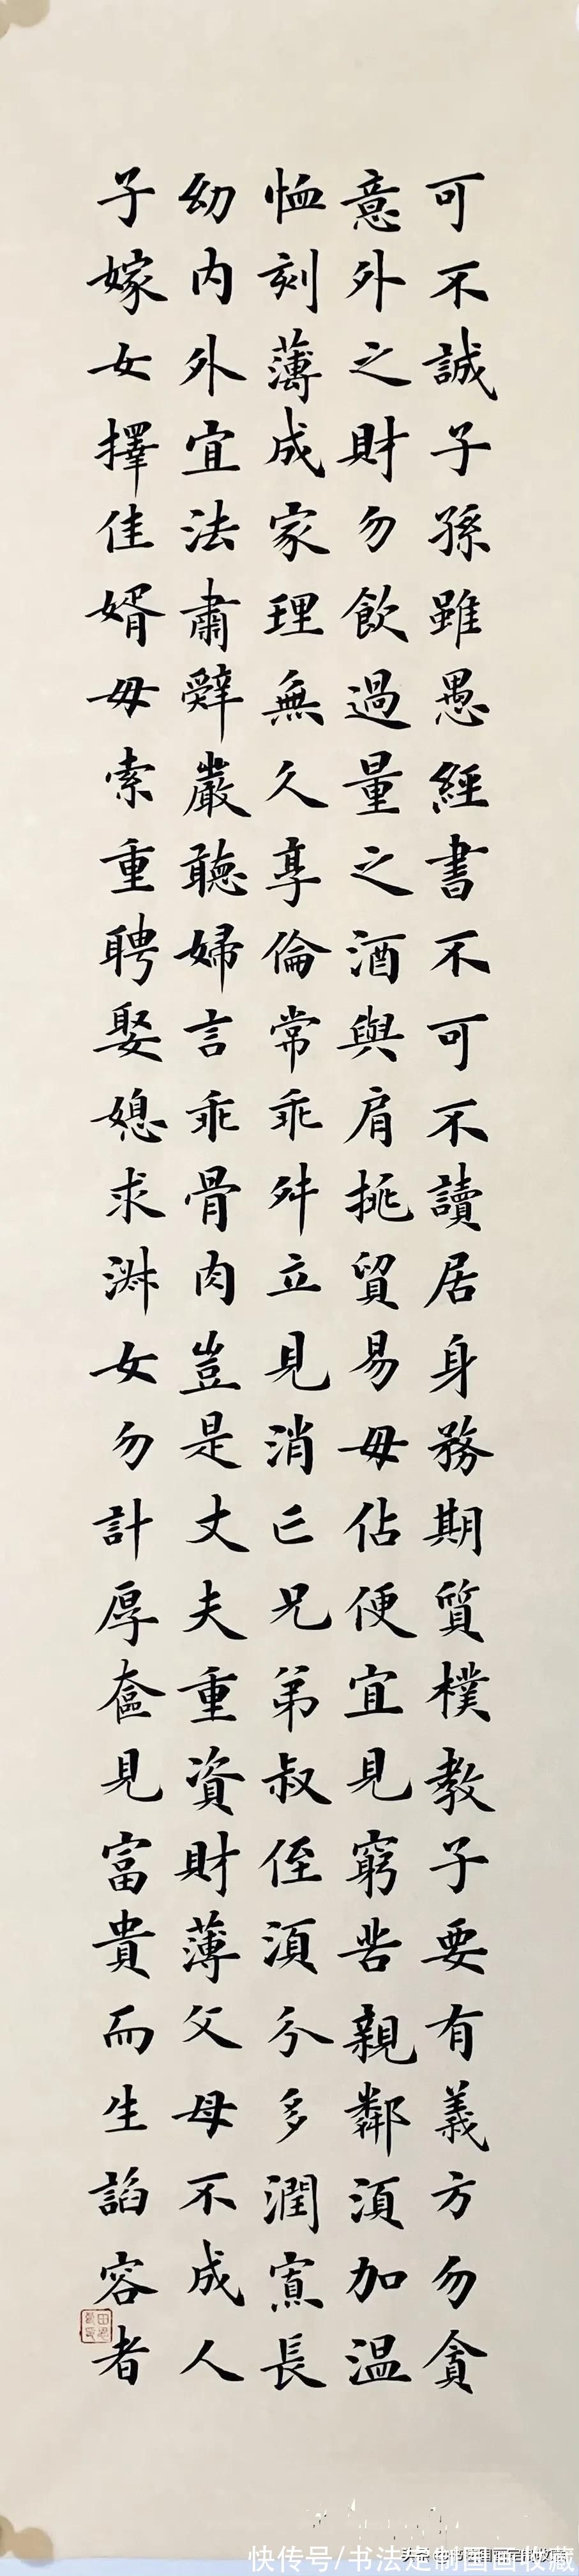 可不誠子孫雖愚經書不可不讀居身務期質樸教子要有義方勿貪
意外之財勿飲過量之酒與肩挑貿易毋佔便宜見窮苦親鄰須加温
恤刻薄成家理無久享倫常乖舛立見消亡兄弟叔侄須分多潤寡長
幼内外宜法肅辭嚴聽婦言乖骨肉豈是丈夫重資財薄父母不成人
子嫁女擇佳婿毋索重聘娶媳求淑女勿計厚奩見富貴而生諂容者
快传号/书法定制国画收藏